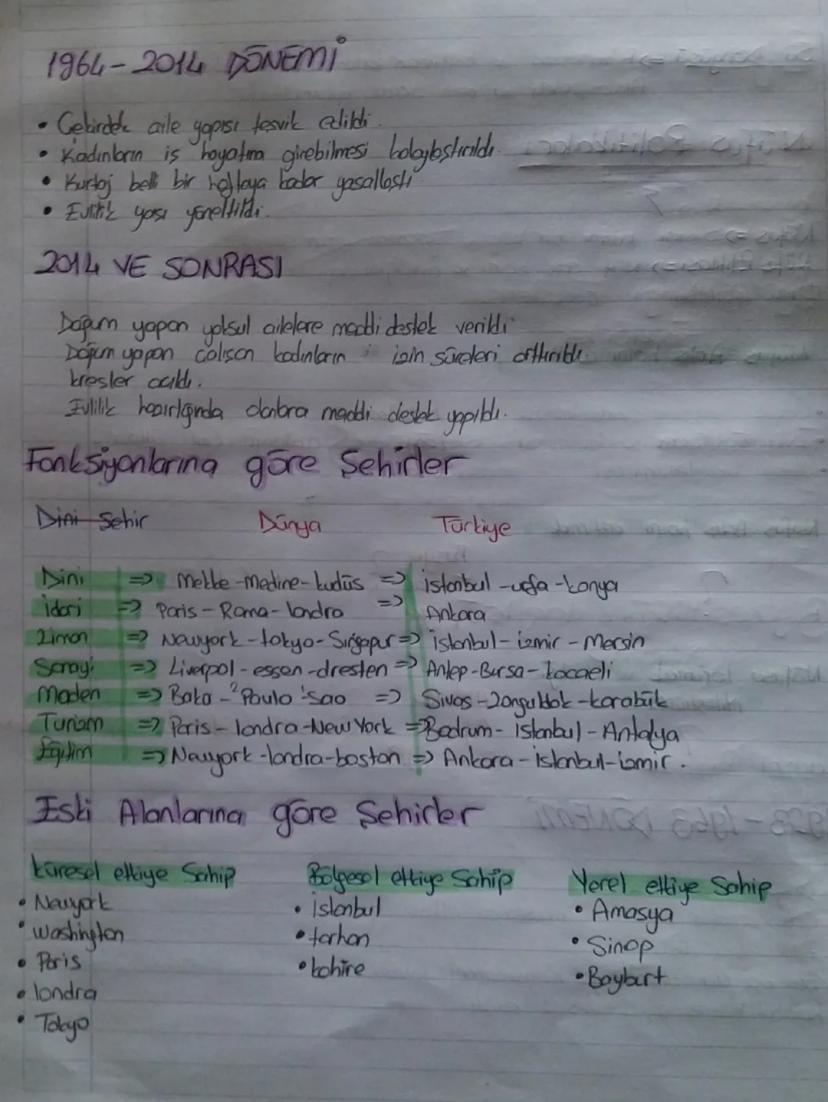 1964-2014 DÖNEMİ
• Çekirdek aile yapısı teşvik edildi.
• Kadınların iş hayatına girebilmesi kolaylaştırıldı.
• Kürtaj belli bir haftaya kadar yasallaştı
• Evlilik yaşı yöneltildi.
2014 VE SONRASI
Doğum yapan yoksul ailelere maddi destek verildi
Doğum yapan çalışan kadınların izin süreleri arttırıldı
kreşler açıldı.
Evlilik hazırlığında olanlara maddi destek yapıldı.
Fonksiyonlarına göre Şehirler
Dini Şehir Dünya Türkiye
Dini => Mekke-medine-kudüs => istanbul-urfa-konya
idari => Paris-Roma-londra => Ankara
Liman => Newyork-tokyo-Singapur => istanbul-izmir-Mersin
Sanayi => Liverpol-essen-dresten => Antep-Bursa-kocaeli
Maden => Bakü-Poulo Sao => Sivas-Zonguldak-karabük
Turizm => Paris-londra-New York => Bodrum-istanbul-Antalya
Eğitim => Newyork-londra-boston => Ankara-istanbul-izmir.
Etki Alanlarına göre Şehirler
küresel etkiye Sahip Bölgesel etkiye Sahip Yerel etkiye Sahip
• Newyork • istanbul • Amasya
• washington • tarhan • Sinop
• Paris • kahire • Bayburt
• londra
• Tokyo